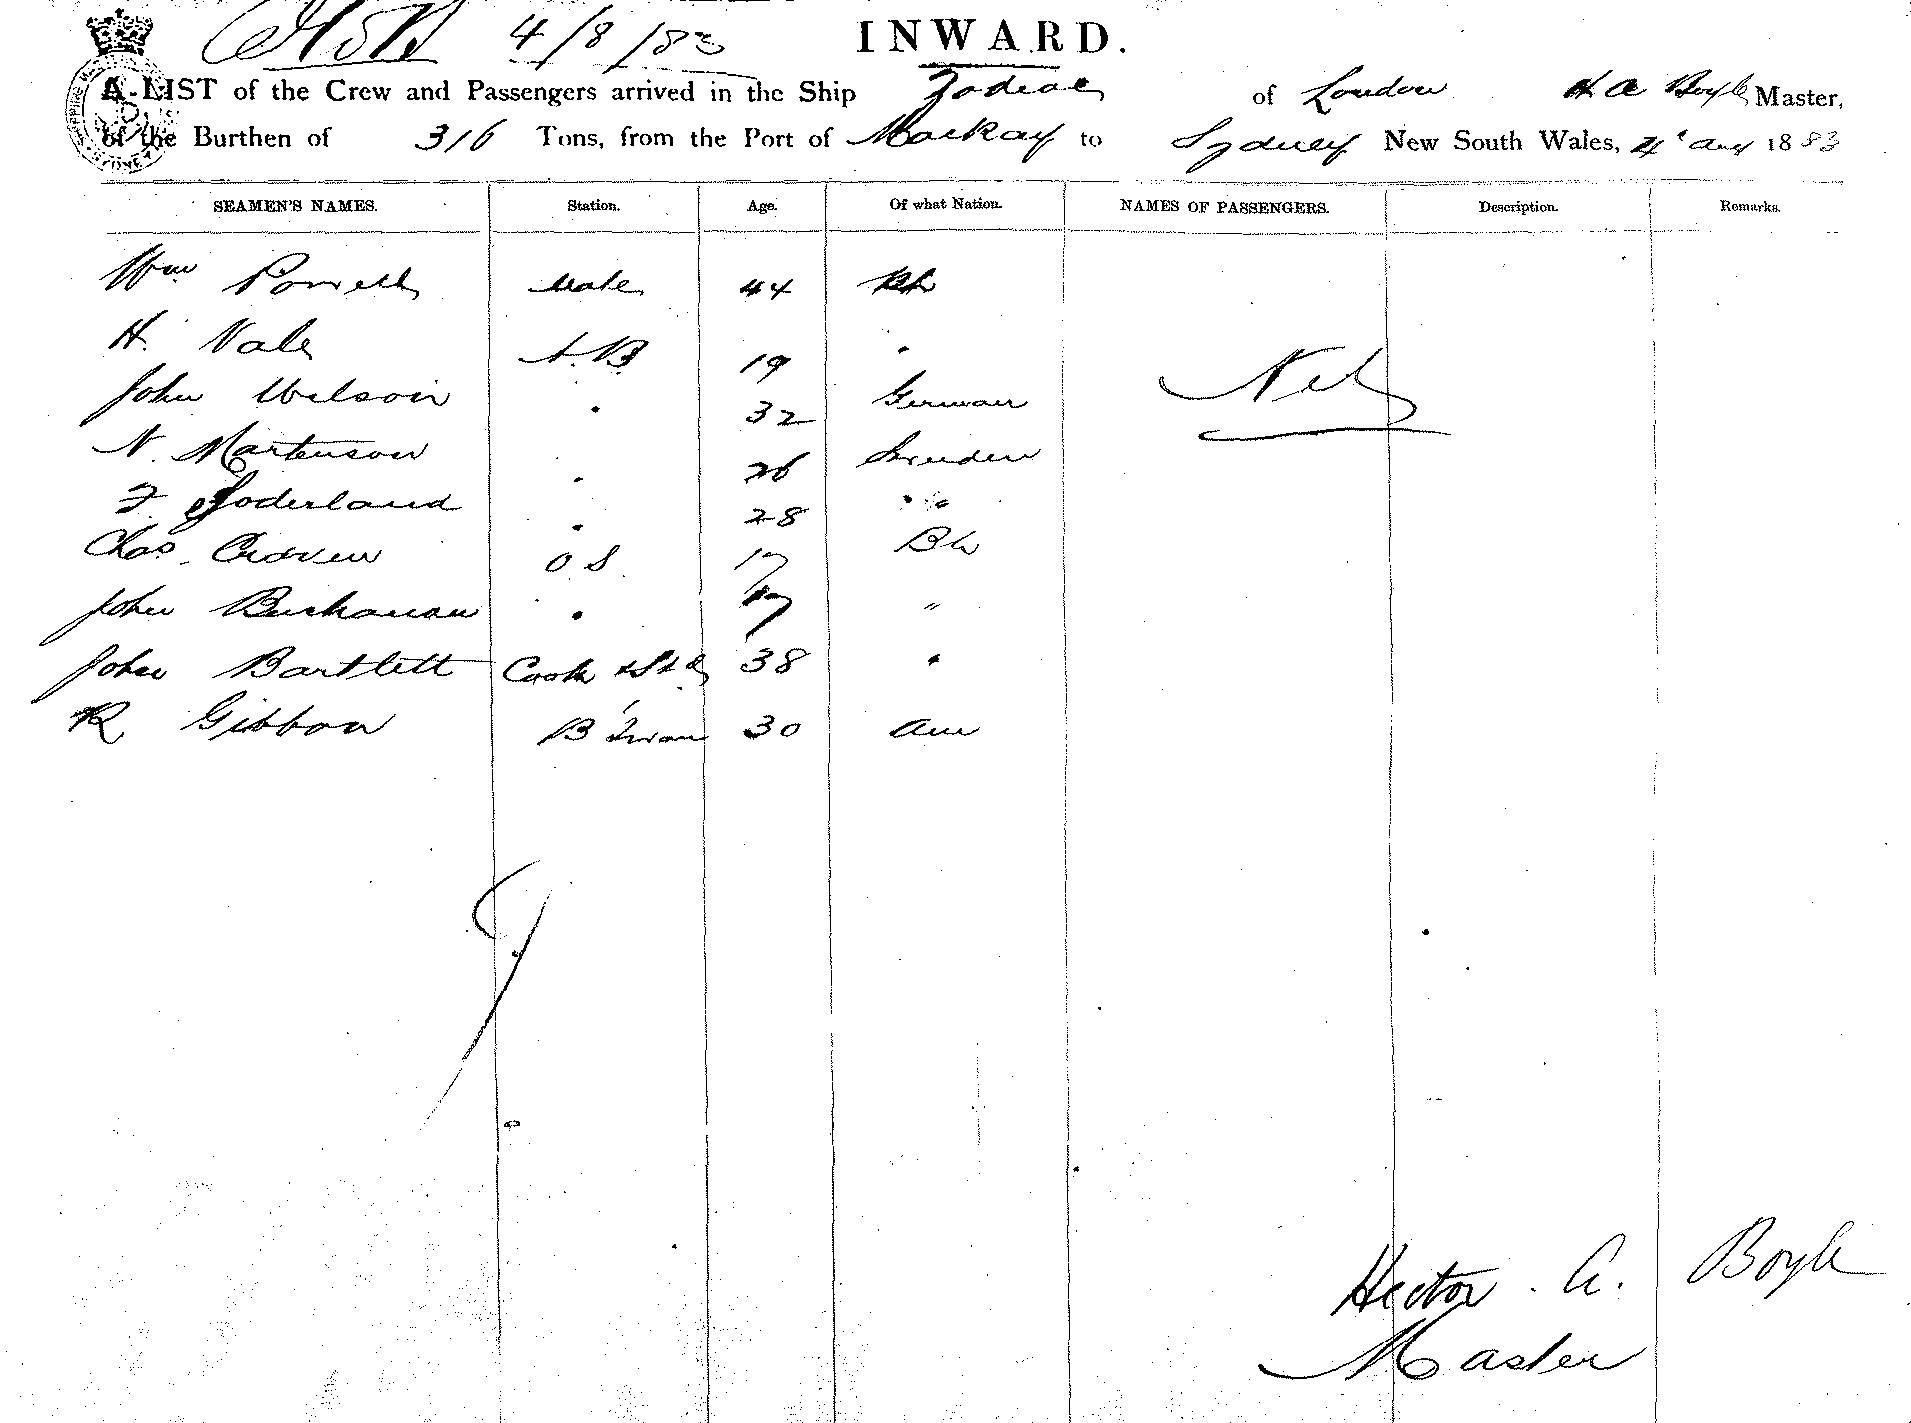 4/8/83 INWARD.
A LIST of the Crew and Passengers arrived in the Ship Zodiac of London H A Boyle Master,
of the Burthen of 316 Tons, from the Port of Mackay to Sydney New South Wales, 4 Aug 1883
SEAMEN'S NAMES. Station. Age. Of what Nation. NAMES OF PASSENGERS. Description. Remarks.
Wm Powell Mate 44 Bh
H. Vale A.B. 19 "
John Wilson " 32 German Nil
N. Martenson " 26 Sweden
F. Soderland " 28 " "
Chas. O S 17 Bh
John Buchanan " 17 "
John Bartlett Cook & Std 38 "
R Gibbon B'swan 30 Am
Hector. A. Boyle
Master